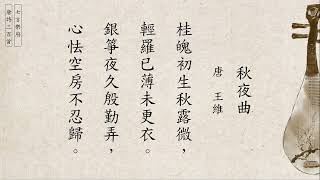 秋夜曲
唐 王維
桂魄初生秋露微，
輕羅已薄未更衣。
銀箏夜久殷勤弄，
心怯空房不忍歸。
七言樂府
唐詩三百首